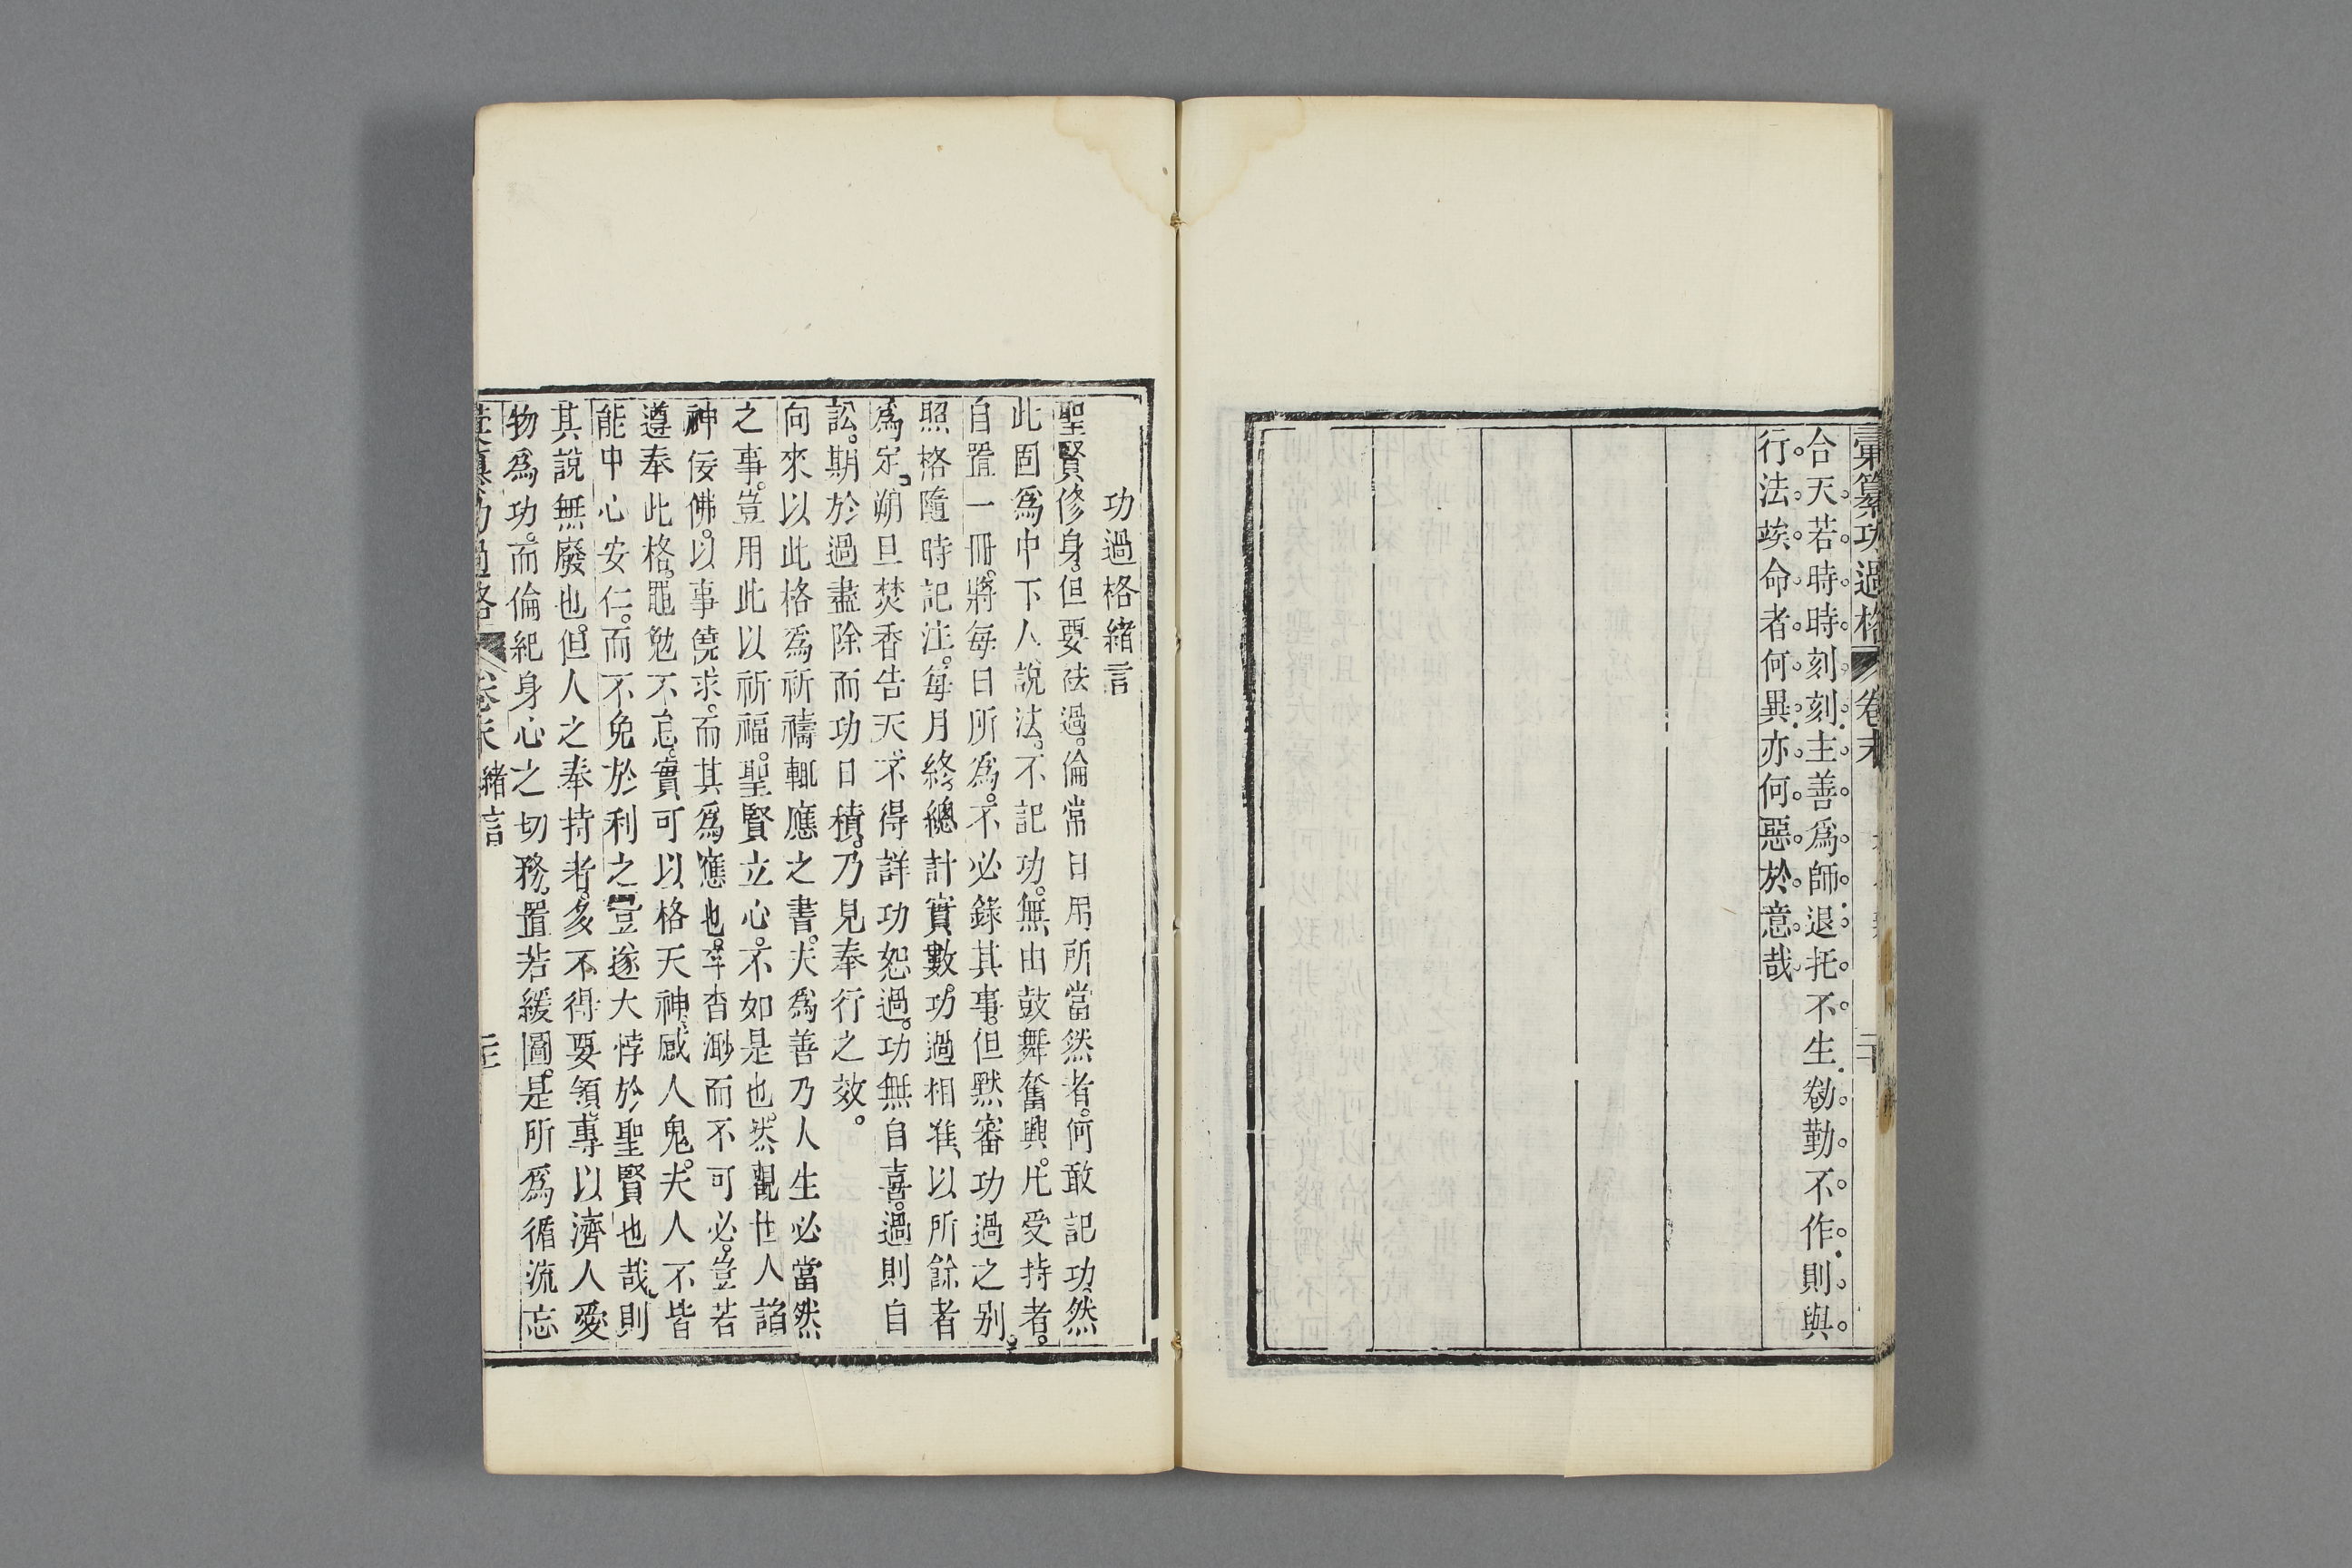 彙纂功過格 卷末 二十
合天若時時刻刻主善為師退托不生勤不作則與
行法竢命者何異亦何惡於意哉
功過格緒言
聖賢修身。但要祛過。倫常日用所當然者。何敢記功。然
此固為中下人說法。不記功。無由鼓舞奮興。凡受持者。
自置一冊。將每日所為。不必錄其事。但默審功過之別。
照格隨時記注。每月終總計實數。功過相准、以所餘者
為定。朔旦焚香告天。不得詳功恕過。功無自喜。過則自
訟。期於過盡除而功日積。乃見奉行之效。
向來以此格為祈禱輒應之書。夫為善乃人生必當然
之事。豈用此以祈福。聖賢立心。不如是也。然觀世人諂
神佞佛。以事僥求。而其為應也。率杳渺而不可必。豈若
遵奉此格。黽勉不怠。實可以格天神。感人鬼。夫人不皆
能中心安仁。而不免於利之。豈遂大悖於聖賢也哉、則
其說無廢也。但人之奉持者。多不得要領。專以濟人愛
物為功。而倫紀身心之切務。置若緩圖。是所為循流忘
功過格 卷末 緒言